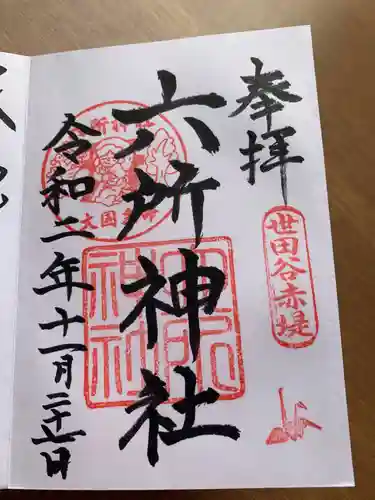 奉拝
世田谷赤堤
六所神社
六所神社
令和二年十一月二十一日